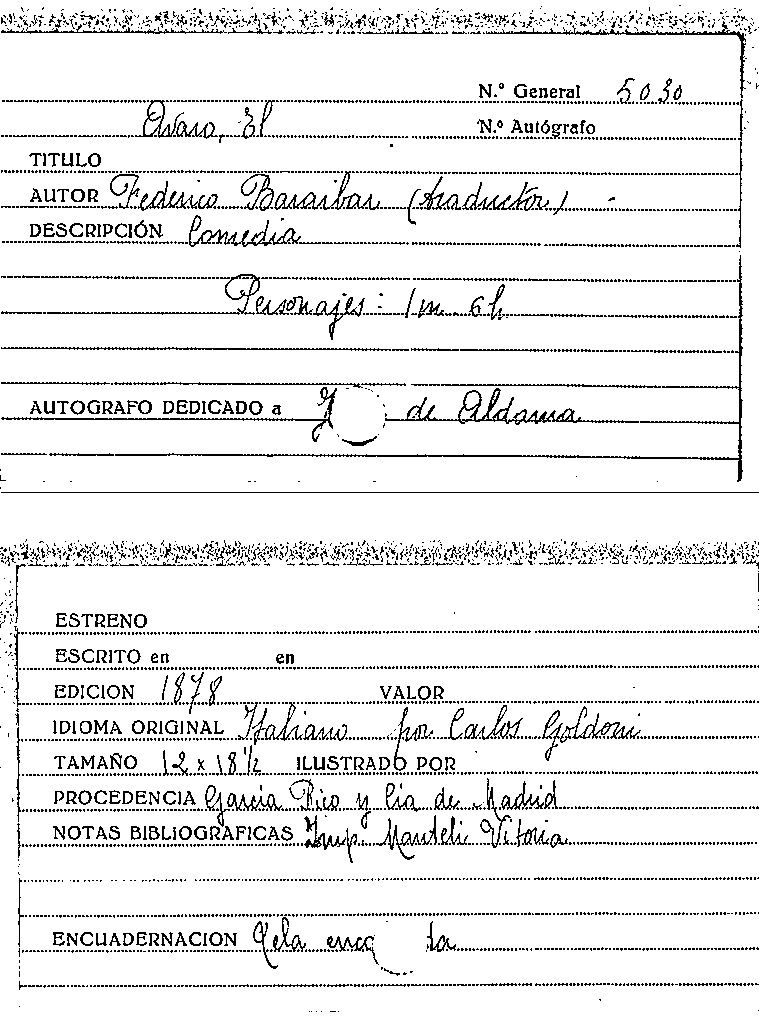 N.º General 5030
Avaro, El
N.º Autógrafo
TITULO
AUTOR Federico Baraibar (traductor) -
DESCRIPCIÓN Comedia
Personajes: 1 m. 6 h
AUTOGRAFO DEDICADO a de Aldama
ESTRENO
ESCRITO en en
EDICION 1878 VALOR
IDIOMA ORIGINAL Italiano por Carlos Goldoni
TAMAÑO 12 x 18 ½ ILUSTRADO POR
PROCEDENCIA Garcia Rico y Cia de Madrid
NOTAS BIBLIOGRAFICAS Imp. Manteli Vitoria
ENCUADERNACION tela